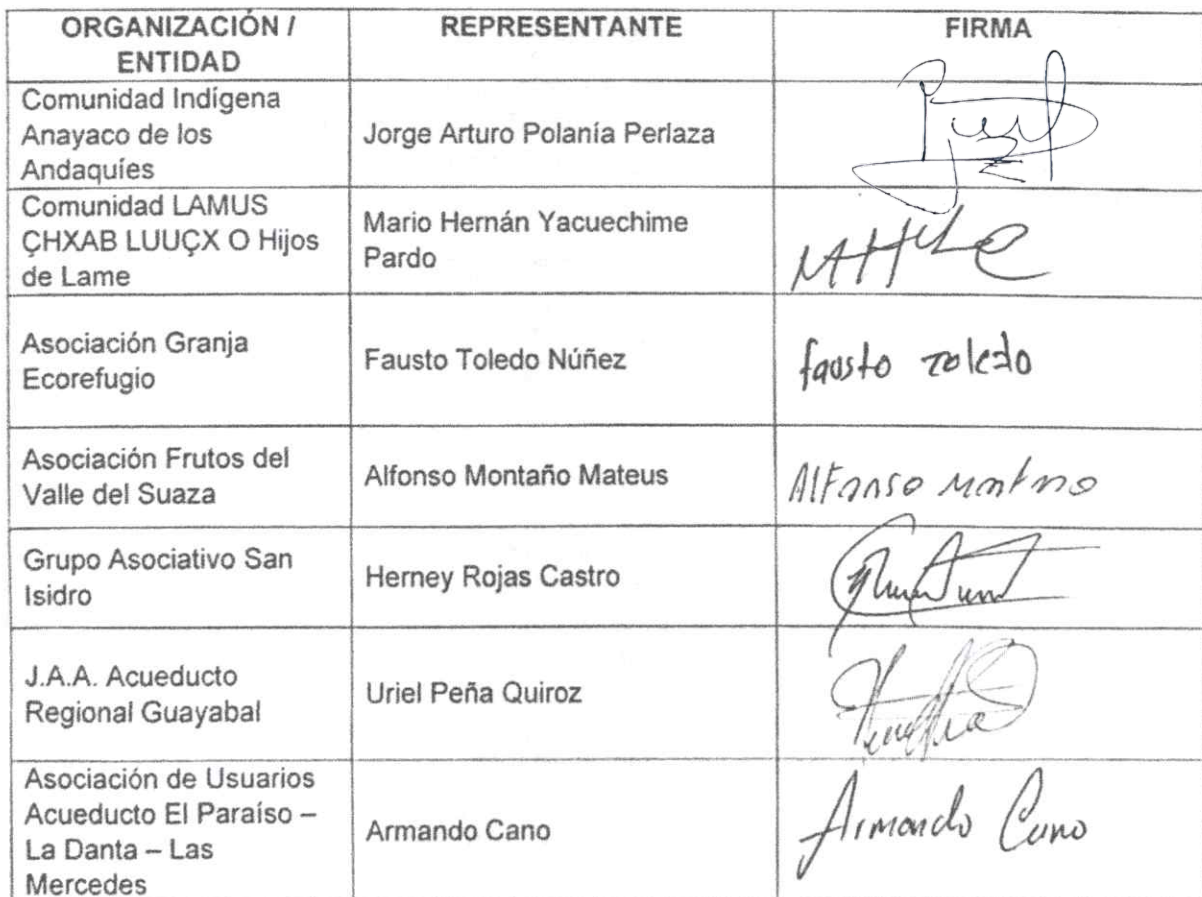 ORGANIZACIÓN /
ENTIDAD
REPRESENTANTE
FIRMA
Comunidad Indígena
Anayaco de los
Andaquíes
Jorge Arturo Polanía Perlaza
Comunidad LAMUS
ÇHXAB LUUÇX O Hijos
de Lame
Mario Hernán Yacuechime
Pardo
Asociación Granja
Ecorefugio
Fausto Toledo Núñez
fausto Toledo
Asociación Frutos del
Valle del Suaza
Alfonso Montaño Mateus
Alfonso
Grupo Asociativo San
Isidro
Herney Rojas Castro
J.A.A. Acueducto
Regional Guayabal
Uriel Peña Quiroz
Asociación de Usuarios
Acueducto El Paraíso –
La Danta – Las
Mercedes
Armando Cano
Armando Cano